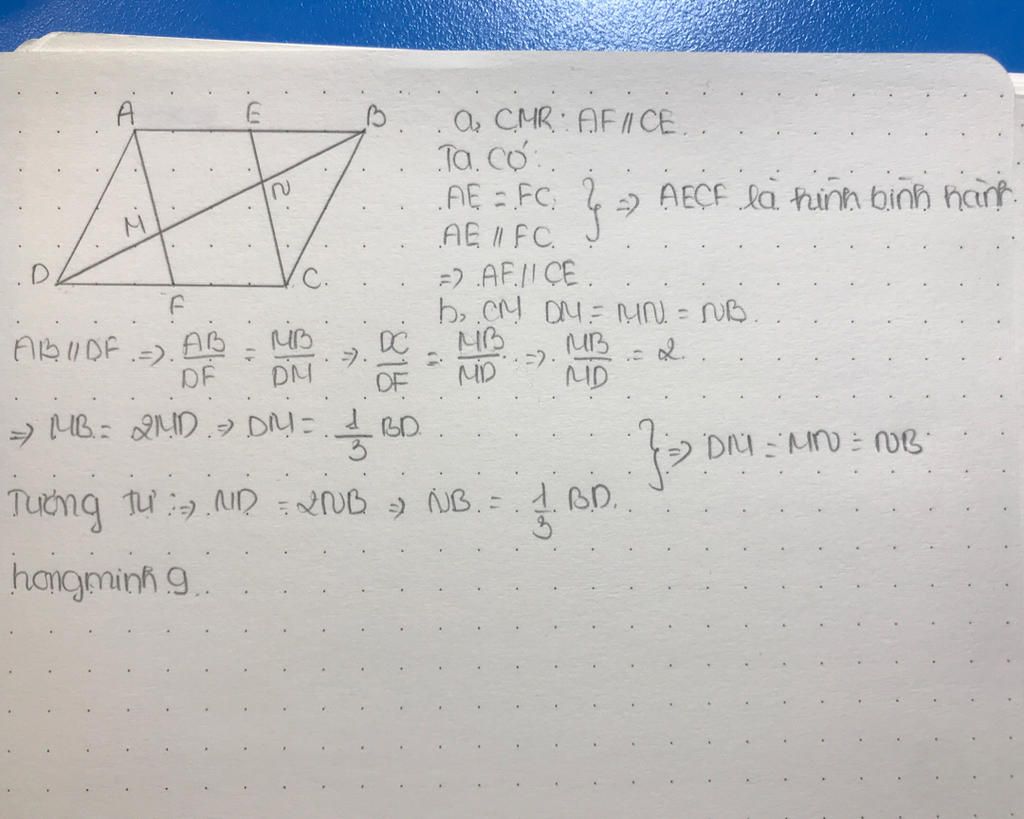 A E B
a, CMR: AF // CE
Ta có:
AE = FC
AE // FC } => AECF là hình bình hành
=> AF // CE
N
M
D F C
b, CM DM = MN = NB
AB // DF => AB/DF = MB/DM => DC/DF = MB/MD => MB/MD = 2
=> MB = 2MD => DM = 1/3 BD
Tương tự => ND = 2NB => NB = 1/3 BD
} => DM = MN = NB
hongminh9